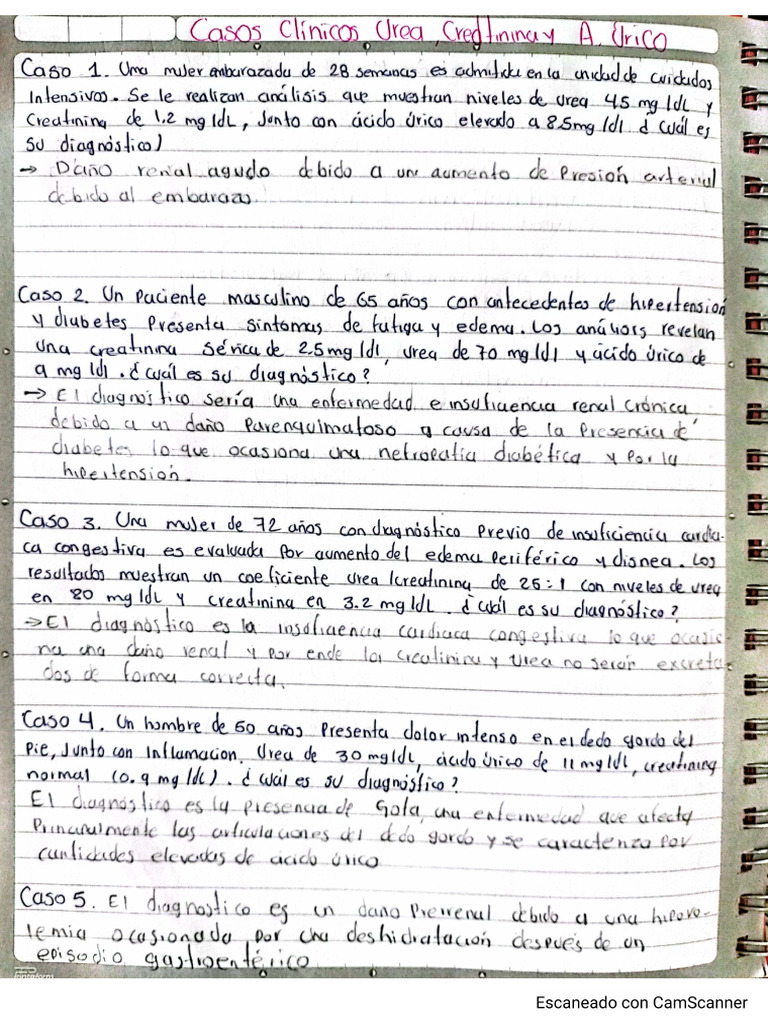 Casos Clínicos Urea, Creatinina y A. Úrico
Caso 1. Una mujer embarazada de 28 semanas es admitida en la unidad de cuidados
intensivos. Se le realizan análisis que muestran niveles de urea 45 mg/dL y
Creatinina de 1.2 mg/dL, Junto con ácido úrico elevado a 8.5mg/dl ¿Cuál es
su diagnóstico?
→ Daño renal agudo debido a un aumento de Presión arterial
debido al embarazo.
Caso 2. Un Paciente masculino de 65 años con antecedentes de hipertensión
y diabetes Presenta Síntomas de fatiga y edema. Los análisis revelan
una creatinina Sérica de 2.5mg/dl, urea de 70 mg/dl y ácido úrico de
9 mg/dl. ¿Cuál es su diagnóstico?
→ El diagnóstico sería una enfermedad e insuficiencia renal Crónica
debido a un daño Parenquimatoso a causa de la Presencia de
diabetes lo que ocasiona una nefropatía diabética y Por la
hipertensión.
Caso 3. Una mujer de 72 años con diagnóstico Previo de insuficiencia cardia-
ca congestiva es evaluada Por aumento del edema Periférico y disnea. Los
resultados muestran un coeficiente Urea/creatinina de 25:1 con niveles de urea
en 80 mg/dL y creatinina en 3.2 mg/dL. ¿Cuál es su diagnóstico?
→ El diagnóstico es la insuficiencia cardiaca congestiva lo que ocasio-
na una daño renal y por ende la creatinina y Urea no serán excreta-
dos de forma correcta.
Caso 4. Un hombre de 50 años Presenta dolor intenso en el dedo gordo del
Pie, Junto con Inflamacion. Urea de 30 mg/dL, ácido úrico de 11 mg/dL, creatinina
normal (0.9 mg/dL). ¿Cuál es su diagnóstico?
El diagnóstico es la presencia de Gota, una enfermedad que afecta
Principalmente las articulaciones del dedo gordo y se caracteriza por
cantidades elevadas de ácido úrico
Caso 5. El diagnostico es un daño Prerrenal debido a una hipovo-
lemia ocasionada por una deshidratación después de un
episodio gastroentérico
Escaneado con CamScanner